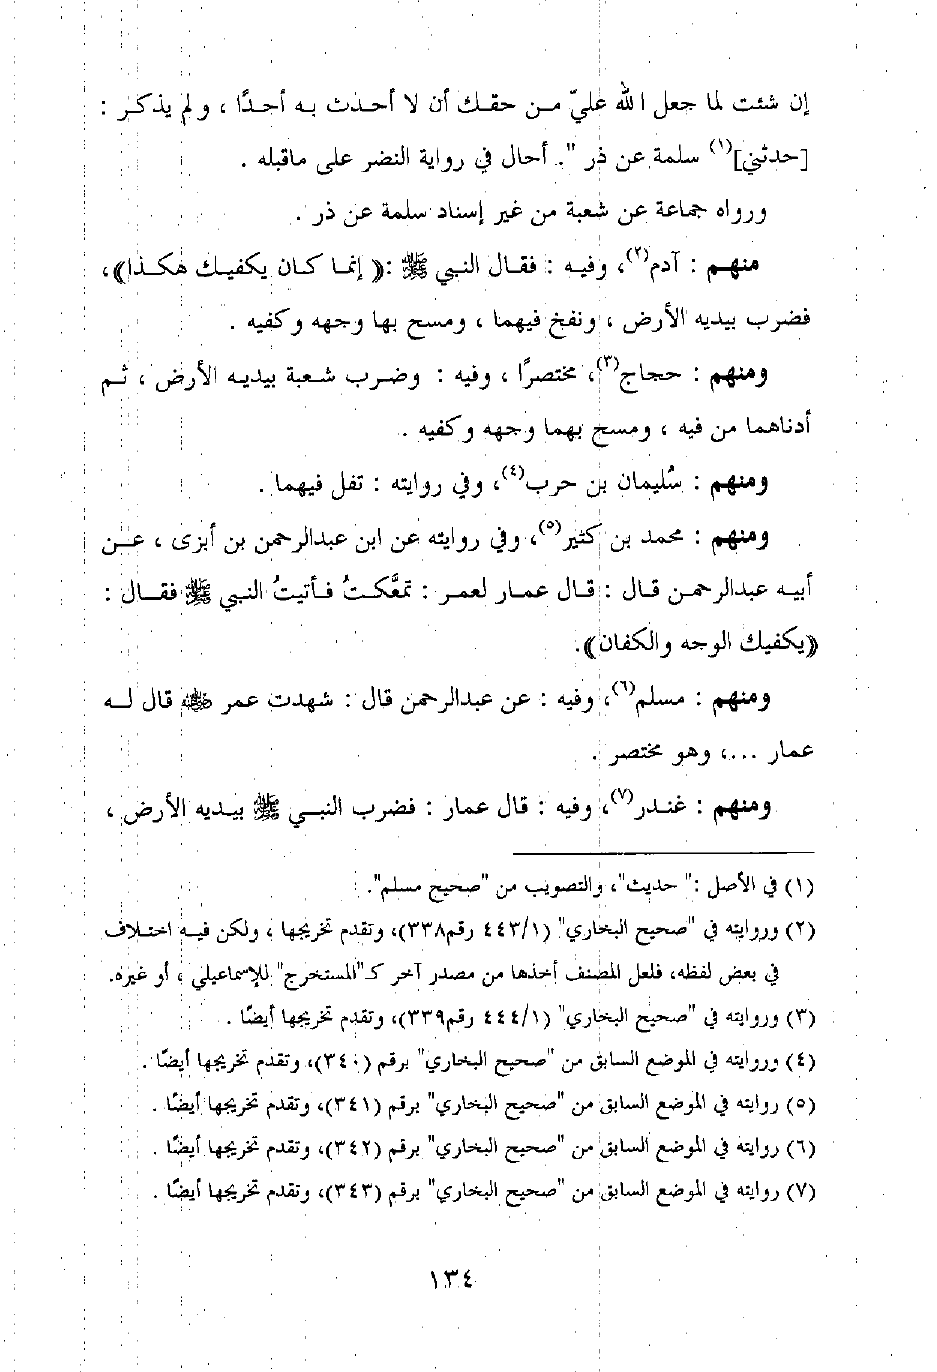 إن شئت لما جعل الله عليّ من حقك أن لا أحدث به أحدًا ، ولم يذكر :
[حدثني](١) سلمة عن ذر ". أحال في رواية النضر على ماقبله .
ورواه جماعة عن شعبة من غير إسناد سلمة عن ذر .
منهم : آدم(٢)، وفيه : فقال النبي ﷺ :﴿ إنما كان يكفيك هكذا﴾،
فضرب بيديه الأرض ، ونفخ فيهما ، ومسح بها وجهه وكفيه .
ومنهم : حجاج(٣)، مختصرًا ، وفيه : وضرب شعبة بيديه الأرض ، ثم
أدناهما من فيه ، ومسح بهما وجهه وكفيه .
ومنهم : سُليمان بن حرب(٤)، وفي روايته : تفل فيهما .
ومنهم : محمد بن كثير(٥)، وفي روايته عن ابن عبدالرحمن بن أبزى ، عن
أبيه عبدالرحمن قال : قال عمار لعمر : تمعَّكتُ فأتيتُ النبي ﷺ فقال :
﴿يكفيك الوجه والكفان﴾.
ومنهم : مسلم(٦)، وفيه : عن عبدالرحمن قال : شهدت عمر ﷺ قال له
عمار ...، وهو مختصر .
ومنهم : غندر(٧)، وفيه : قال عمار : فضرب النبي ﷺ بيديه الأرض ،
(١) في الأصل :" حديث"، والتصويب من "صحيح مسلم".
(٢) وروايته في "صحيح البخاري" (٤٤٣/١ رقم٣٣٨)، وتقدم تخريجها ، ولكن فيه اختلاف
في بعض لفظه، فلعل المصنف أخذها من مصدر آخر كـ"المستخرج" للإسماعيلي ، أو غيره.
(٣) وروايته في "صحيح البخاري" (٤٤٤/١ رقم٣٣٩)، وتقدم تخريجها أيضًا .
(٤) وروايته في الموضع السابق من "صحيح البخاري" برقم (٣٤٠)، وتقدم تخريجها أيضًا .
(٥) روايته في الموضع السابق من "صحيح البخاري" برقم (٣٤١)، وتقدم تخريجها أيضًا .
(٦) روايته في الموضع السابق من "صحيح البخاري" برقم (٣٤٢)، وتقدم تخريجها أيضًا .
(٧) روايته في الموضع السابق من "صحيح البخاري" برقم (٣٤٣)، وتقدم تخريجها أيضًا .
١٣٤